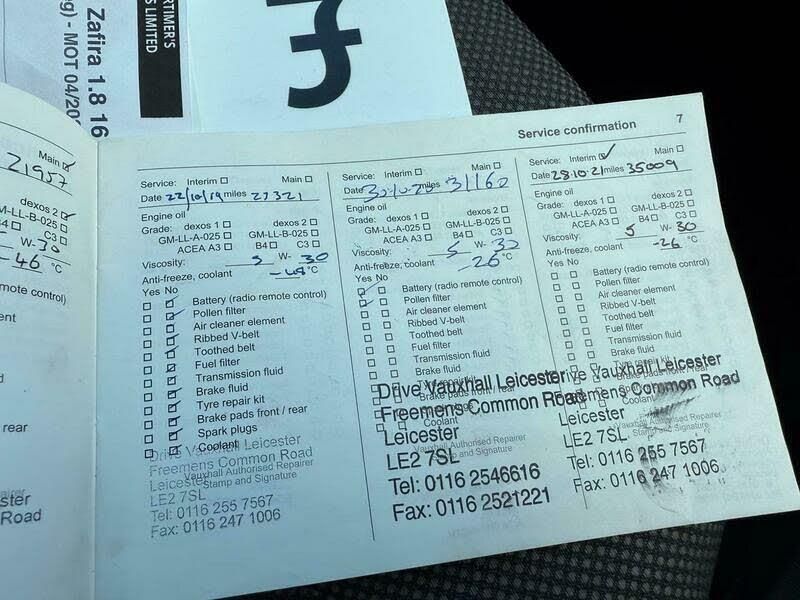 RTIMER'S
S LIMITED
Zafira 1.8 16
g) - MOT 04/20
Main
21957
dexos 2
M-LL-B-025
B4 C3
W-30
-46 °C
mote control)
ent
rear
Service confirmation 7
Service: Interim Main
Date 22/10/19 miles 27321
Engine oil
Grade: dexos 1 dexos 2
GM-LL-A-025 GM-LL-B-025
ACEA A3 B4 C3
Viscosity: 5 W- 30
Anti-freeze, coolant °C
Yes No
Battery (radio remote control)
Pollen filter
Air cleaner element
Ribbed V-belt
Toothed belt
Fuel filter
Transmission fluid
Brake fluid
Tyre repair kit
Brake pads front / rear
Spark plugs
Coolant
Drive Vauxhall Leicester
Freemens Common Road
Vauxhall Authorised Repairer
Leicester
Stamp and Signature
LE2 7SL
Tel: 0116 255 7567
Fax: 0116 247 1006
Service: Interim Main
Date 30.10.20 miles 31160
Engine oil
Grade: dexos 1 dexos 2
GM-LL-A-025 GM-LL-B-025
ACEA A3 B4 C3
Viscosity: 5 W- 30
Anti-freeze, coolant -26 °C
Yes No
Battery (radio remote control)
Pollen filter
Air cleaner element
Ribbed V-belt
Toothed belt
Fuel filter
Transmission fluid
Brake fluid
Tyre repair kit
Brake pads front / rear
Coolant
Drive Vauxhall Leicester
Freemens Common Road
Leicester
Vauxhall Authorised Repairer
Stamp and Signature
LE2 7SL
Tel: 0116 2546616
Fax: 0116 2521221
Service: Interim Main
Date 28.10.21 miles 35009
Engine oil
Grade: dexos 1 dexos 2
GM-LL-A-025 GM-LL-B-025
ACEA A3 B4 C3
Viscosity: 5 W- 30
Anti-freeze, coolant -26 °C
Yes No
Battery (radio remote control)
Pollen filter
Air cleaner element
Ribbed V-belt
Toothed belt
Fuel filter
Transmission fluid
Brake fluid
Tyre repair kit
Brake pads front / rear
Coolant
Drive Vauxhall Leicester
Freemens Common Road
Leicester
Vauxhall Authorised Repairer
Stamp and Signature
LE2 7SL
Tel: 0116 255 7567
Fax: 0116 247 1006